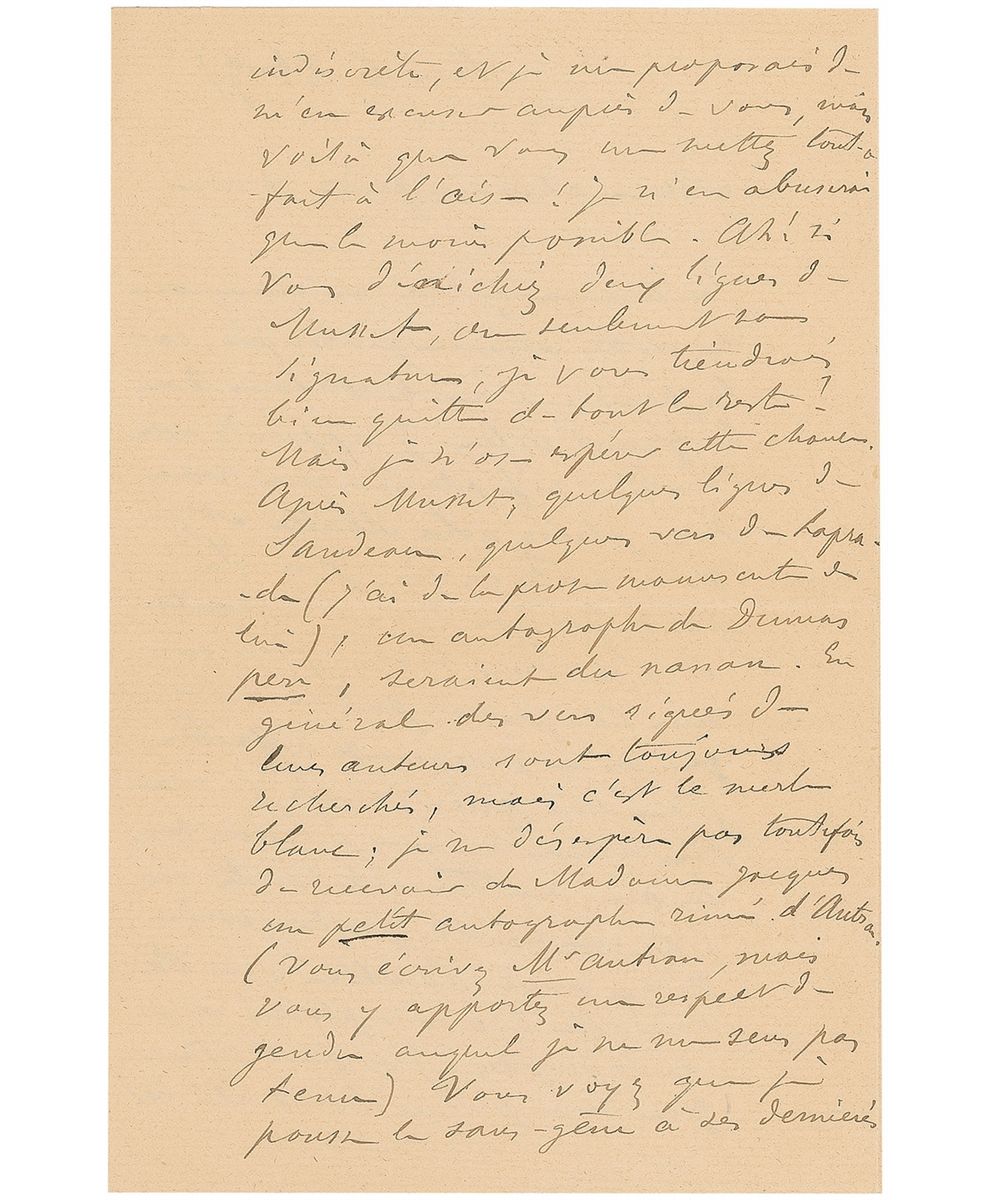 indiscrète, et je me proposais de
m'en excuser auprès de vous, mais
voilà que vous me mettez tout-à
fait à l'aise ! je n'en abuserai
que le moins possible. Ah ! si
vous dénichiez deux lignes de
Musset, ou seulement sa
signature, je vous tiendrais
bien quitte de tout le reste !
Mais je n'ose espérer cette chance.
Après Musset, quelques lignes de
Sandeau, quelques vers de Lapra-
-de (j'ai de la prose manuscrite de
lui), un autographe de Dumas
père, seraient du nanan. En
général des vers signés de
leurs auteurs sont toujours
recherchés, mais c'est le merle
blanc ; je ne désespère pas toutefois
de recevoir de Madame Jacques
un petit autographe rimé d'Autran.
(Vous écrivez Mr Autran, mais
vous y apportez un respect de
gendre auquel je ne me sens pas
tenu) Vous voyez que je
pousse le sans-gêne à ses dernières